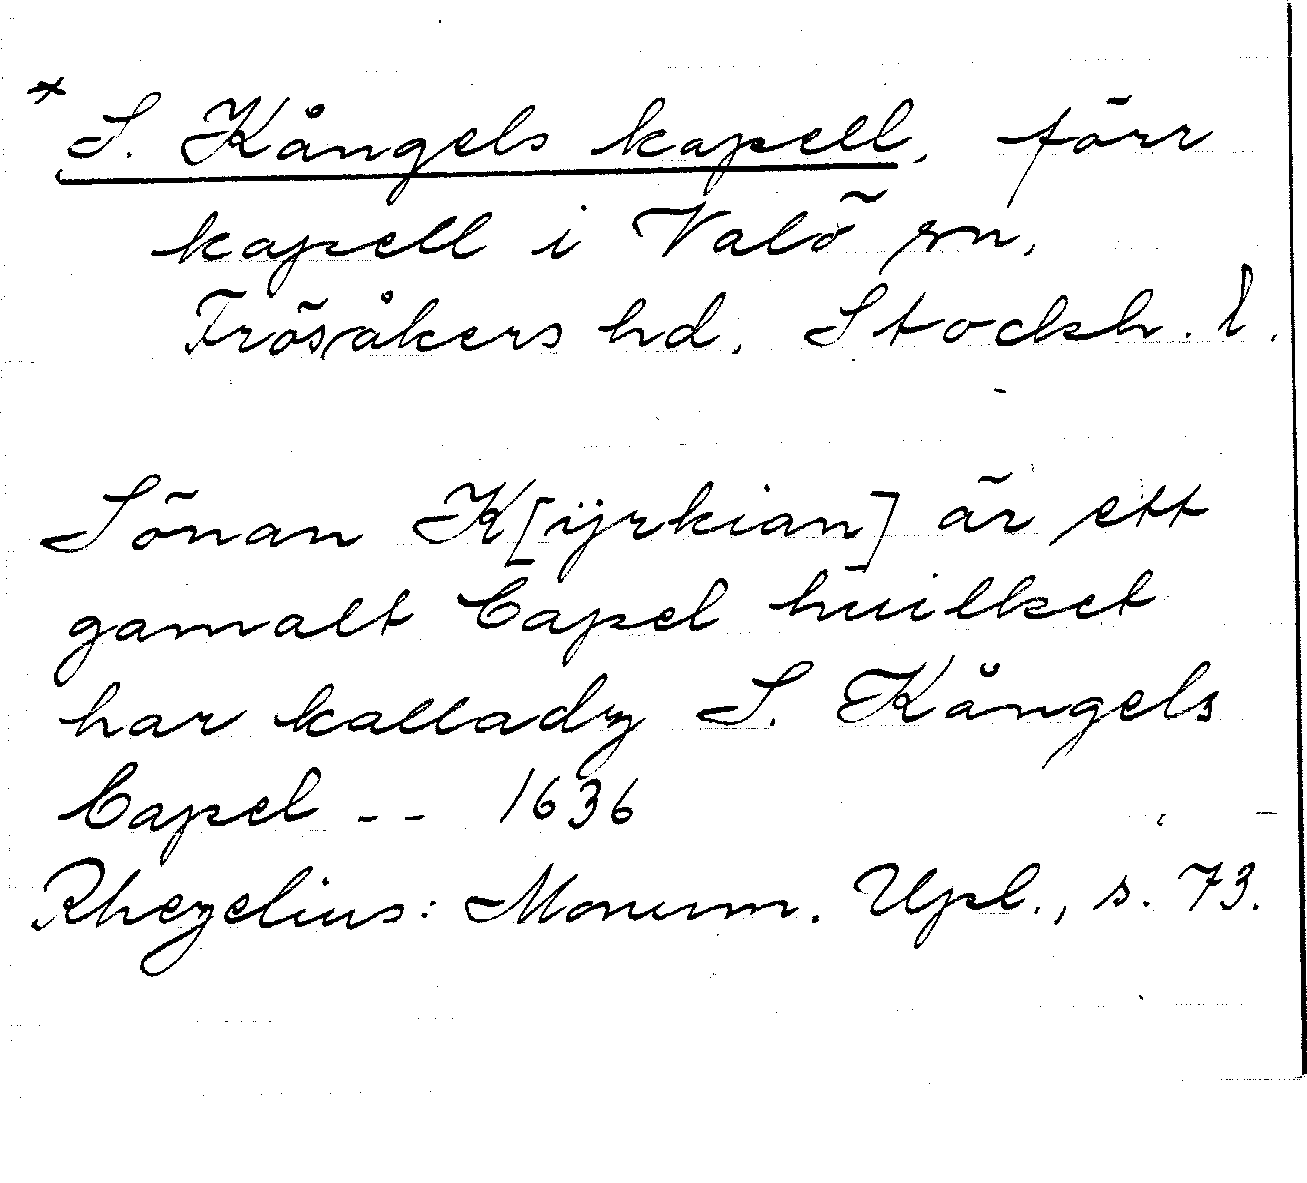 * S. Kångels kapell, förr
kapell i Valö sn,
Frösåkers hd, Stockh. l.
Sönan K[ijrkian] är ett
gamalt Capel huilket
har kalladz S. Kångels
Capel -- 1636
Rhezelius: Monum. Upl., s. 73.